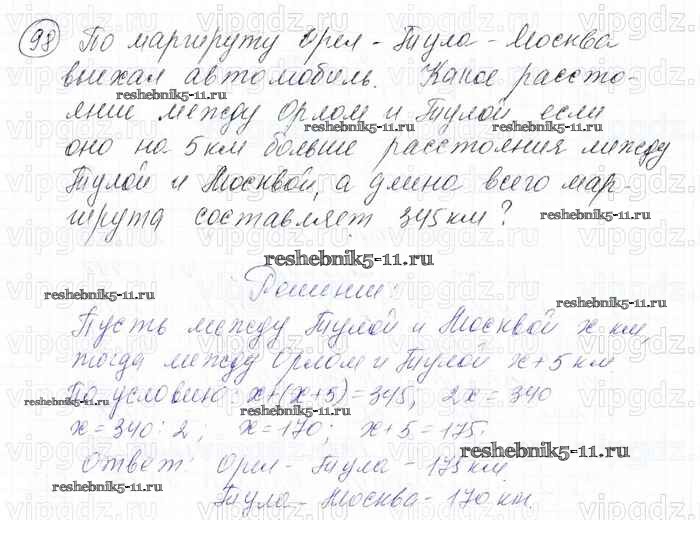 98 По маршруту Орел - Тула - Москва
выехал автомобиль. Какое рассто-
reshebnik5-11.ru
яние между Орлом и Тулой если
reshebnik5-11.ru
оно на 5 км больше расстояния между
Тулой и Москвой, а длина всего мар-
шрута составляет 345 км?
reshebnik5-11.ru
reshebnik5-11.ru
Решение:
reshebnik5-11.ru
reshebnik5-11.ru
Пусть между Тулой и Москвой x км,
тогда между Орлом и Тулой x+5 км
По условию: x+(x+5)=345, 2x=340
reshebnik5-11.ru
x=340:2; x=170; x+5=175.
reshebnik5-11.ru
Ответ: Орел - Тула - 175 км
reshebnik5-11.ru
Тула - Москва - 170 км.